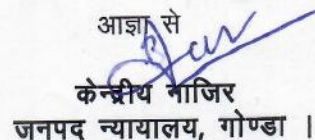 आज्ञा से
केन्द्रीय नाजिर
जनपद न्यायालय, गोण्डा ।